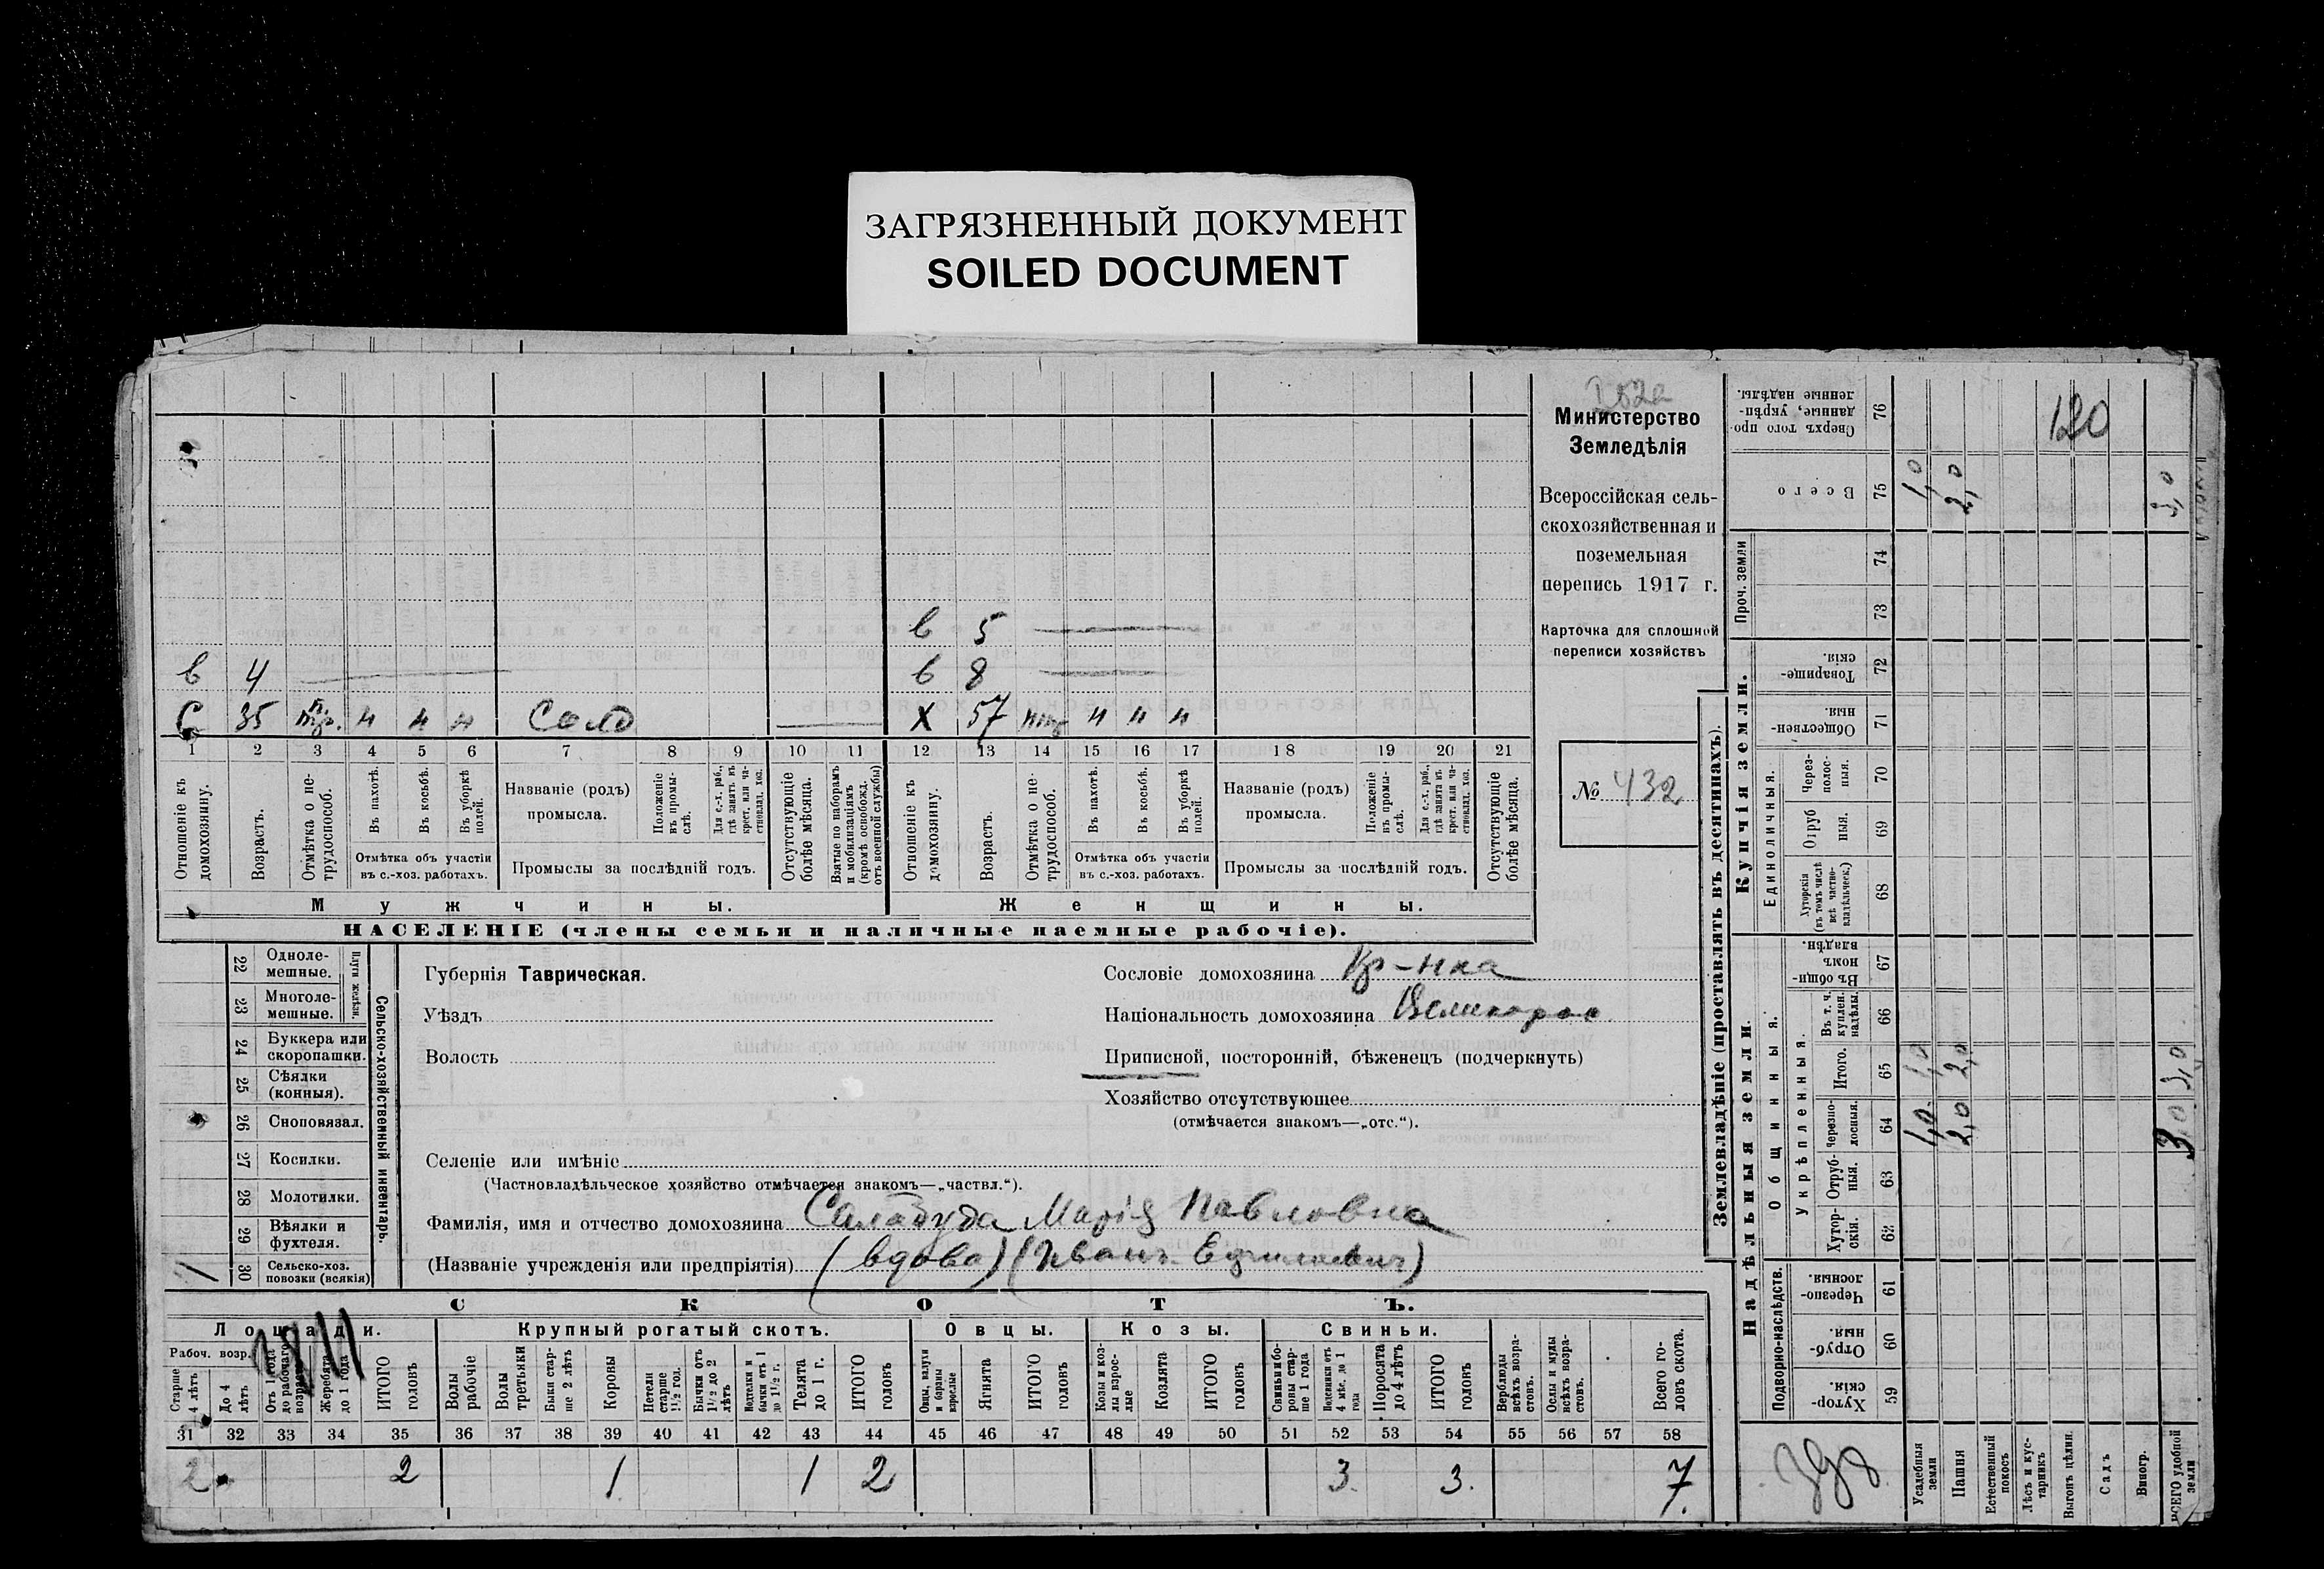 ЗАГРЯЗНЕННЫЙ ДОКУМЕНТ
SOILED DOCUMENT
Министерство
Земледѣлія
Всероссійская сель-
скохозяйственная и
поземельная
перепись 1917 г.
Карточка для сплошной
переписи хозяйствъ
№ 432
в 5
в 4
в 8
С 35 Сало
Х 57
1 2 3 4 5 6 7 8 9 10 11 12 13 14 15 16 17 18 19 20 21
Отношеніе къ домохозяину.
Возрастъ.
Отмѣтка о не-трудоспособ.
Въ пахотѣ.
Въ косьбѣ.
Въ уборкѣ полей.
Отмѣтка объ участіи
въ с.-хоз. работахъ.
Названіе (родъ)
промысла.
Положеніе въ промы-слѣ.
Для с.-х. раб., гдѣ занятъ въ крест. или ча-стновлад. хоз.
Промыслы за послѣдній годъ.
Отсутствующіе болѣе мѣсяца.
Взятые по наборамъ и мобилизаціямъ (кромѣ освобожд. отъ военной службы)
Отношеніе къ домохозяину.
Возрастъ.
Отмѣтка о не-трудоспособ.
Въ пахотѣ.
Въ косьбѣ.
Въ уборкѣ полей.
Отмѣтка объ участіи
въ с.-хоз. работахъ.
Названіе (родъ)
промысла.
Положеніе въ промы-слѣ.
Для с.-х. раб., гдѣ занята въ крест. или ча-стновлад. хоз.
Промыслы за послѣдній годъ.
Отсутствующіе болѣе мѣсяца.
Мужчины. Женщины.
НАСЕЛЕНІЕ (члены семьи и наличные наемные рабочіе).
Сельско-хозяйственный инвентарь.
Плуги желѣзн.
22 Одноле-мешные.
23 Многоле-мешные.
24 Буккера или скоропашки.
25 Сѣялки (конныя).
26 Сноповязал.
27 Косилки.
28 Молотилки.
29 Вѣялки и фухтеля.
30 Сельско-хоз. повозки (всякія)
Губернія Таврическая.
Уѣздъ
Волость
Сословіе домохозяина Кр-нка
Національность домохозяина Великорос
Приписной, посторонній, бѣженецъ (подчеркнуть)
Хозяйство отсутствующее
(отмѣчается знакомъ—„отс.“).
Селеніе или имѣніе
(Частновладѣльческое хозяйство отмѣчается знакомъ—„частвл.“).
Фамилія, имя и отчество домохозяина Салабуда Марія Павловна
(Названіе учрежденія или предпріятія) (вдова) (Иванъ
СКОТЪ.
Лошади. Крупный рогатый скотъ. Овцы. Козы. Свиньи.
Рабоч. возр.
Старше 4 лѣтъ
До 4 лѣтъ
Отъ 1 года до рабочаго возраста
Жеребята до 1 года
ИТОГО головъ
Волы рабочіе
Волы третьяки
Быки стар-ше 2 лѣтъ
Коровы
Нетели старше 1½ год.
Бычки отъ 1½ до 2 лѣтъ
Телята до 1 г.
ИТОГО головъ
Овцы, валухи и бараны взрослые
Ягнята
ИТОГО головъ
Козы и коз-лы взрос-лые
Козлята
ИТОГО головъ
Свиньи и бо-ровы стар-ше 1 года
Подсвинки отъ 4 мѣс. до 1 года
Поросята до 4 лѣтъ
ИТОГО головъ
Верблюды всѣхъ возра-стовъ.
Ослы и мулы всѣхъ возра-стовъ.
Всего го-ловъ скота.
31 32 33 34 35 36 37 38 39 40 41 42 43 44 45 46 47 48 49 50 51 52 53 54 55 56 57 58
2 2 1 1 2 3 3 7
Землевладѣніе (проставлять въ десятинахъ).
Купчія земли.
Надѣльныя земли.
Сверхъ того про-данные, укрѣп-ленные надѣлы. 76
120
Всего 75 1,0 2,0 3,0
Проч. земли 74 73
Товарище-скія. 72
Обществен-ныя. 71
Единоличныя.
Через-полос-ныя. 70
Отруб ныя. 69
Хуторскія (въ томъ числѣ всѣ частно-владѣльческ.) 68
Общинныя.
Въ общи-номъ владѣн. 67
Укрѣпленныя.
Въ т. ч. куплен. надѣлы. 66
Итого. 65 1,0 2,0 3,0
Черезпо-лосныя. 64 1,0 2,0
Отруб-ныя. 63
Хутор-скія. 62
Подворно-наслѣдств.
Черезпо-лосныя. 61
Отруб-ныя. 60
Хутор-скія. 59
Усадебныя земли
Пашня
Естественный покосъ
Лѣсъ и кус-тарникъ
Выгонъ цѣлин.
Садъ
Виногр.
ВСЕГО удобной земли